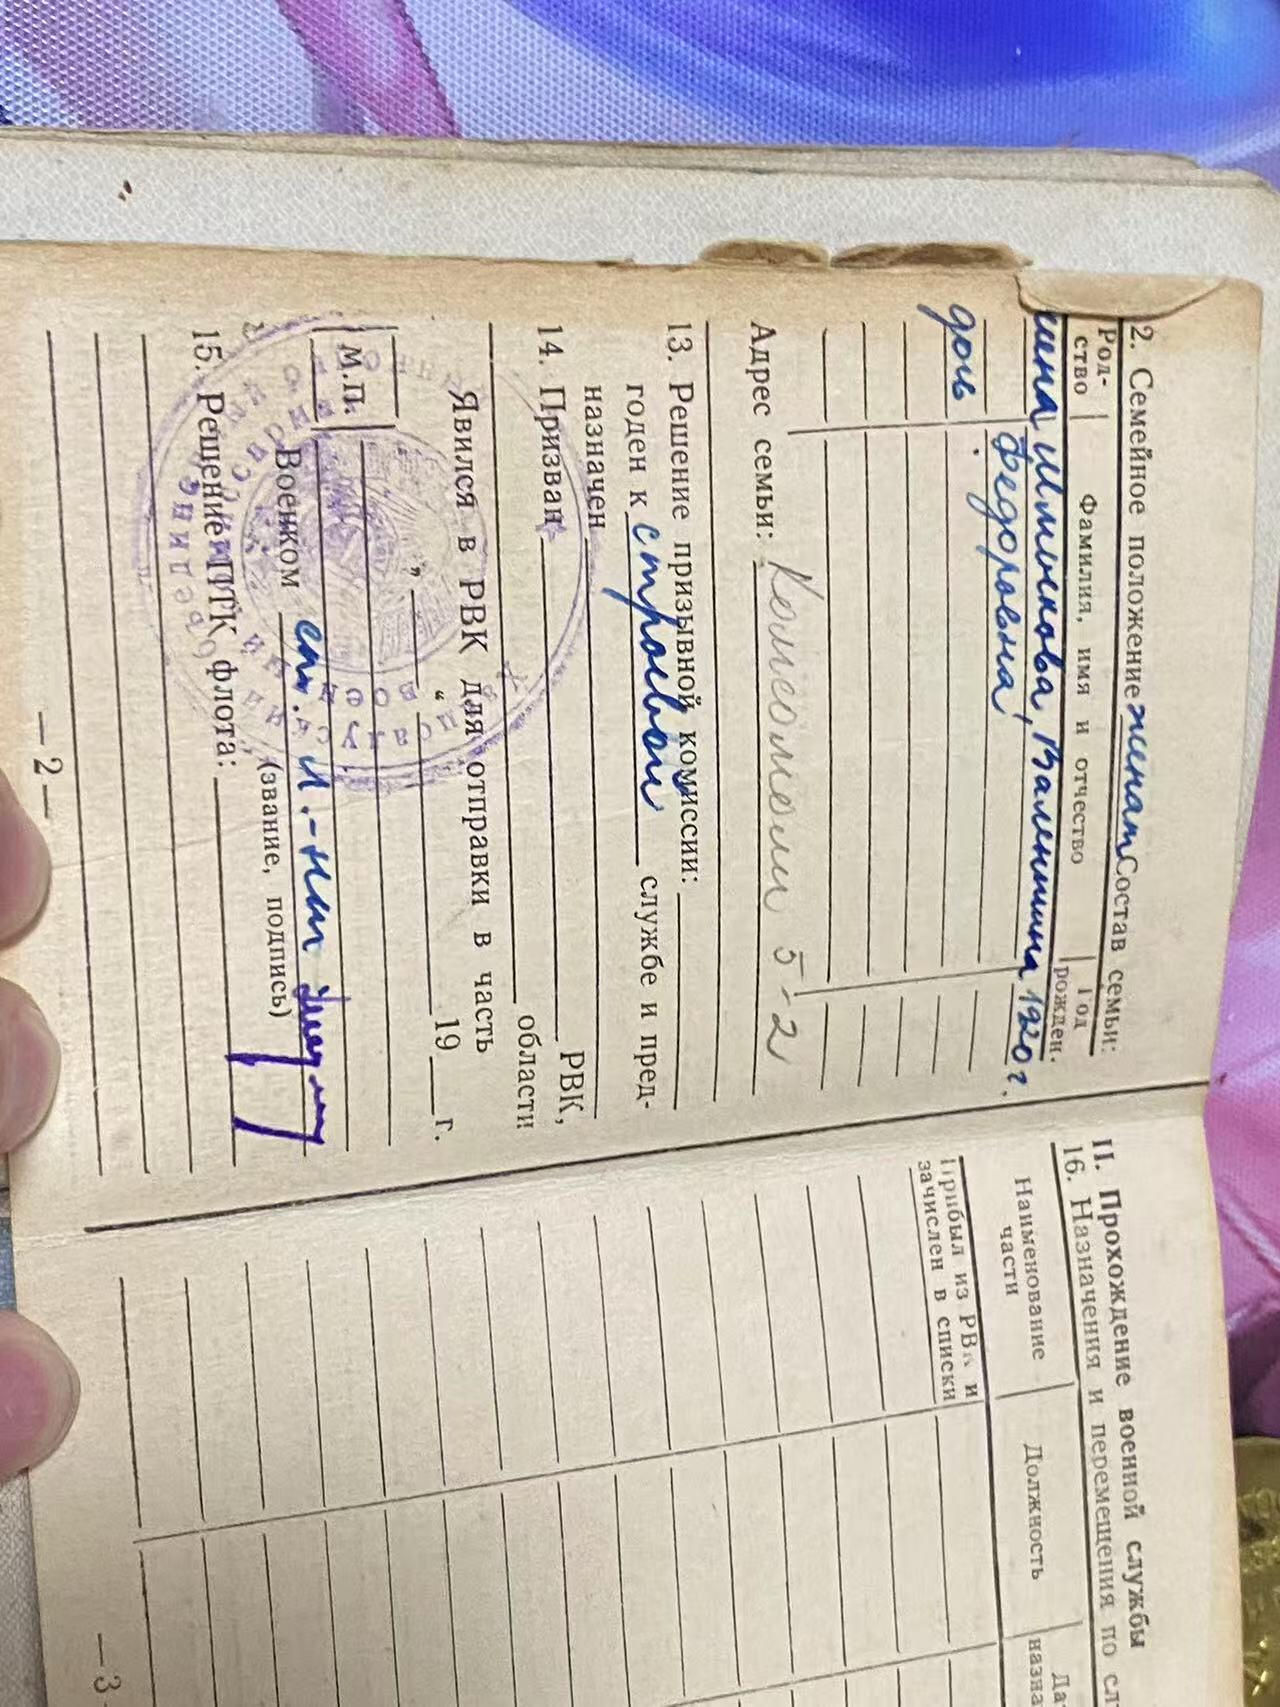 2. Семейное положение женат Состав семьи:
Род-
ство
Фамилия, имя и отчество
Год
рожден.
Валентина 1920 г.
Федоровна
дочь
Адрес семьи: 5-2
13. Решение призывной комиссии:
годен к строевой службе и пред-
назначен
14. Призван РВК,
области
Явился в РВК для отправки в часть
„ “ 19 г.
М.П.
Военком ст. л.-нт
(звание, подпись)
15. Решение ПТК флота:
—2—
II. Прохождение военной службы
16. Назначения и перемещения по сл
Наименование
части
Должность
Да
назна
Прибыл из РВК и
зачислен в списки
—3